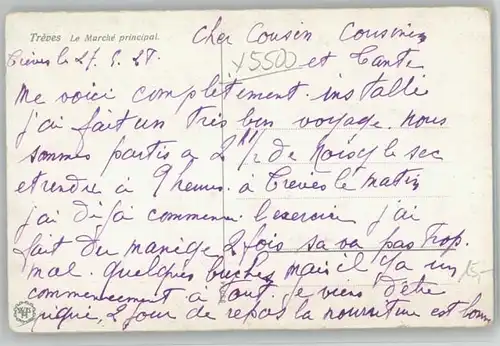 Trèves Le Marché principal.
Trèves le 27. 5. 27.
cher Cousin Cousines
et Tante
x5500
me voici complètement installé
j'ai fait un très bon voyage. nous
sommes partis a 2 h 1/2 de Noisy le sec
et rendre à 9 heures. à Trèves le matin
j'ai déjà commencer l'exercice j'ai
fait du manège 2 fois sa va pas trop
mal. quelques buches mais il y a un
commencement à tout. je viens d'être
piqué, 2 jour de repos la nourriture est bonne
15,-